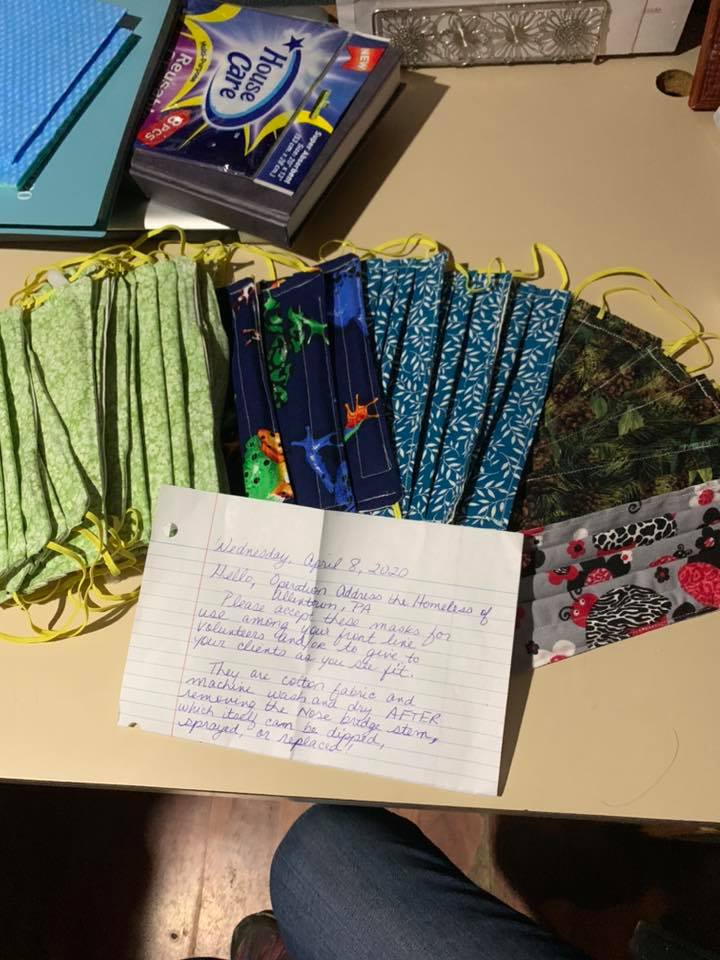 NEW
House
Care
Multi-Purpose
8 PCS
Super Absorbent
Wednesday, April 8, 2020
Hello, Operation Address the Homeless of
Allentown, PA
Please accept these masks for
use among your front line
volunteers and/or to give to
your clients as you see fit.
They are cotton fabric and
machine wash and dry AFTER
removing the nose bridge stem,
which itself can be dipped,
sprayed, or replaced!